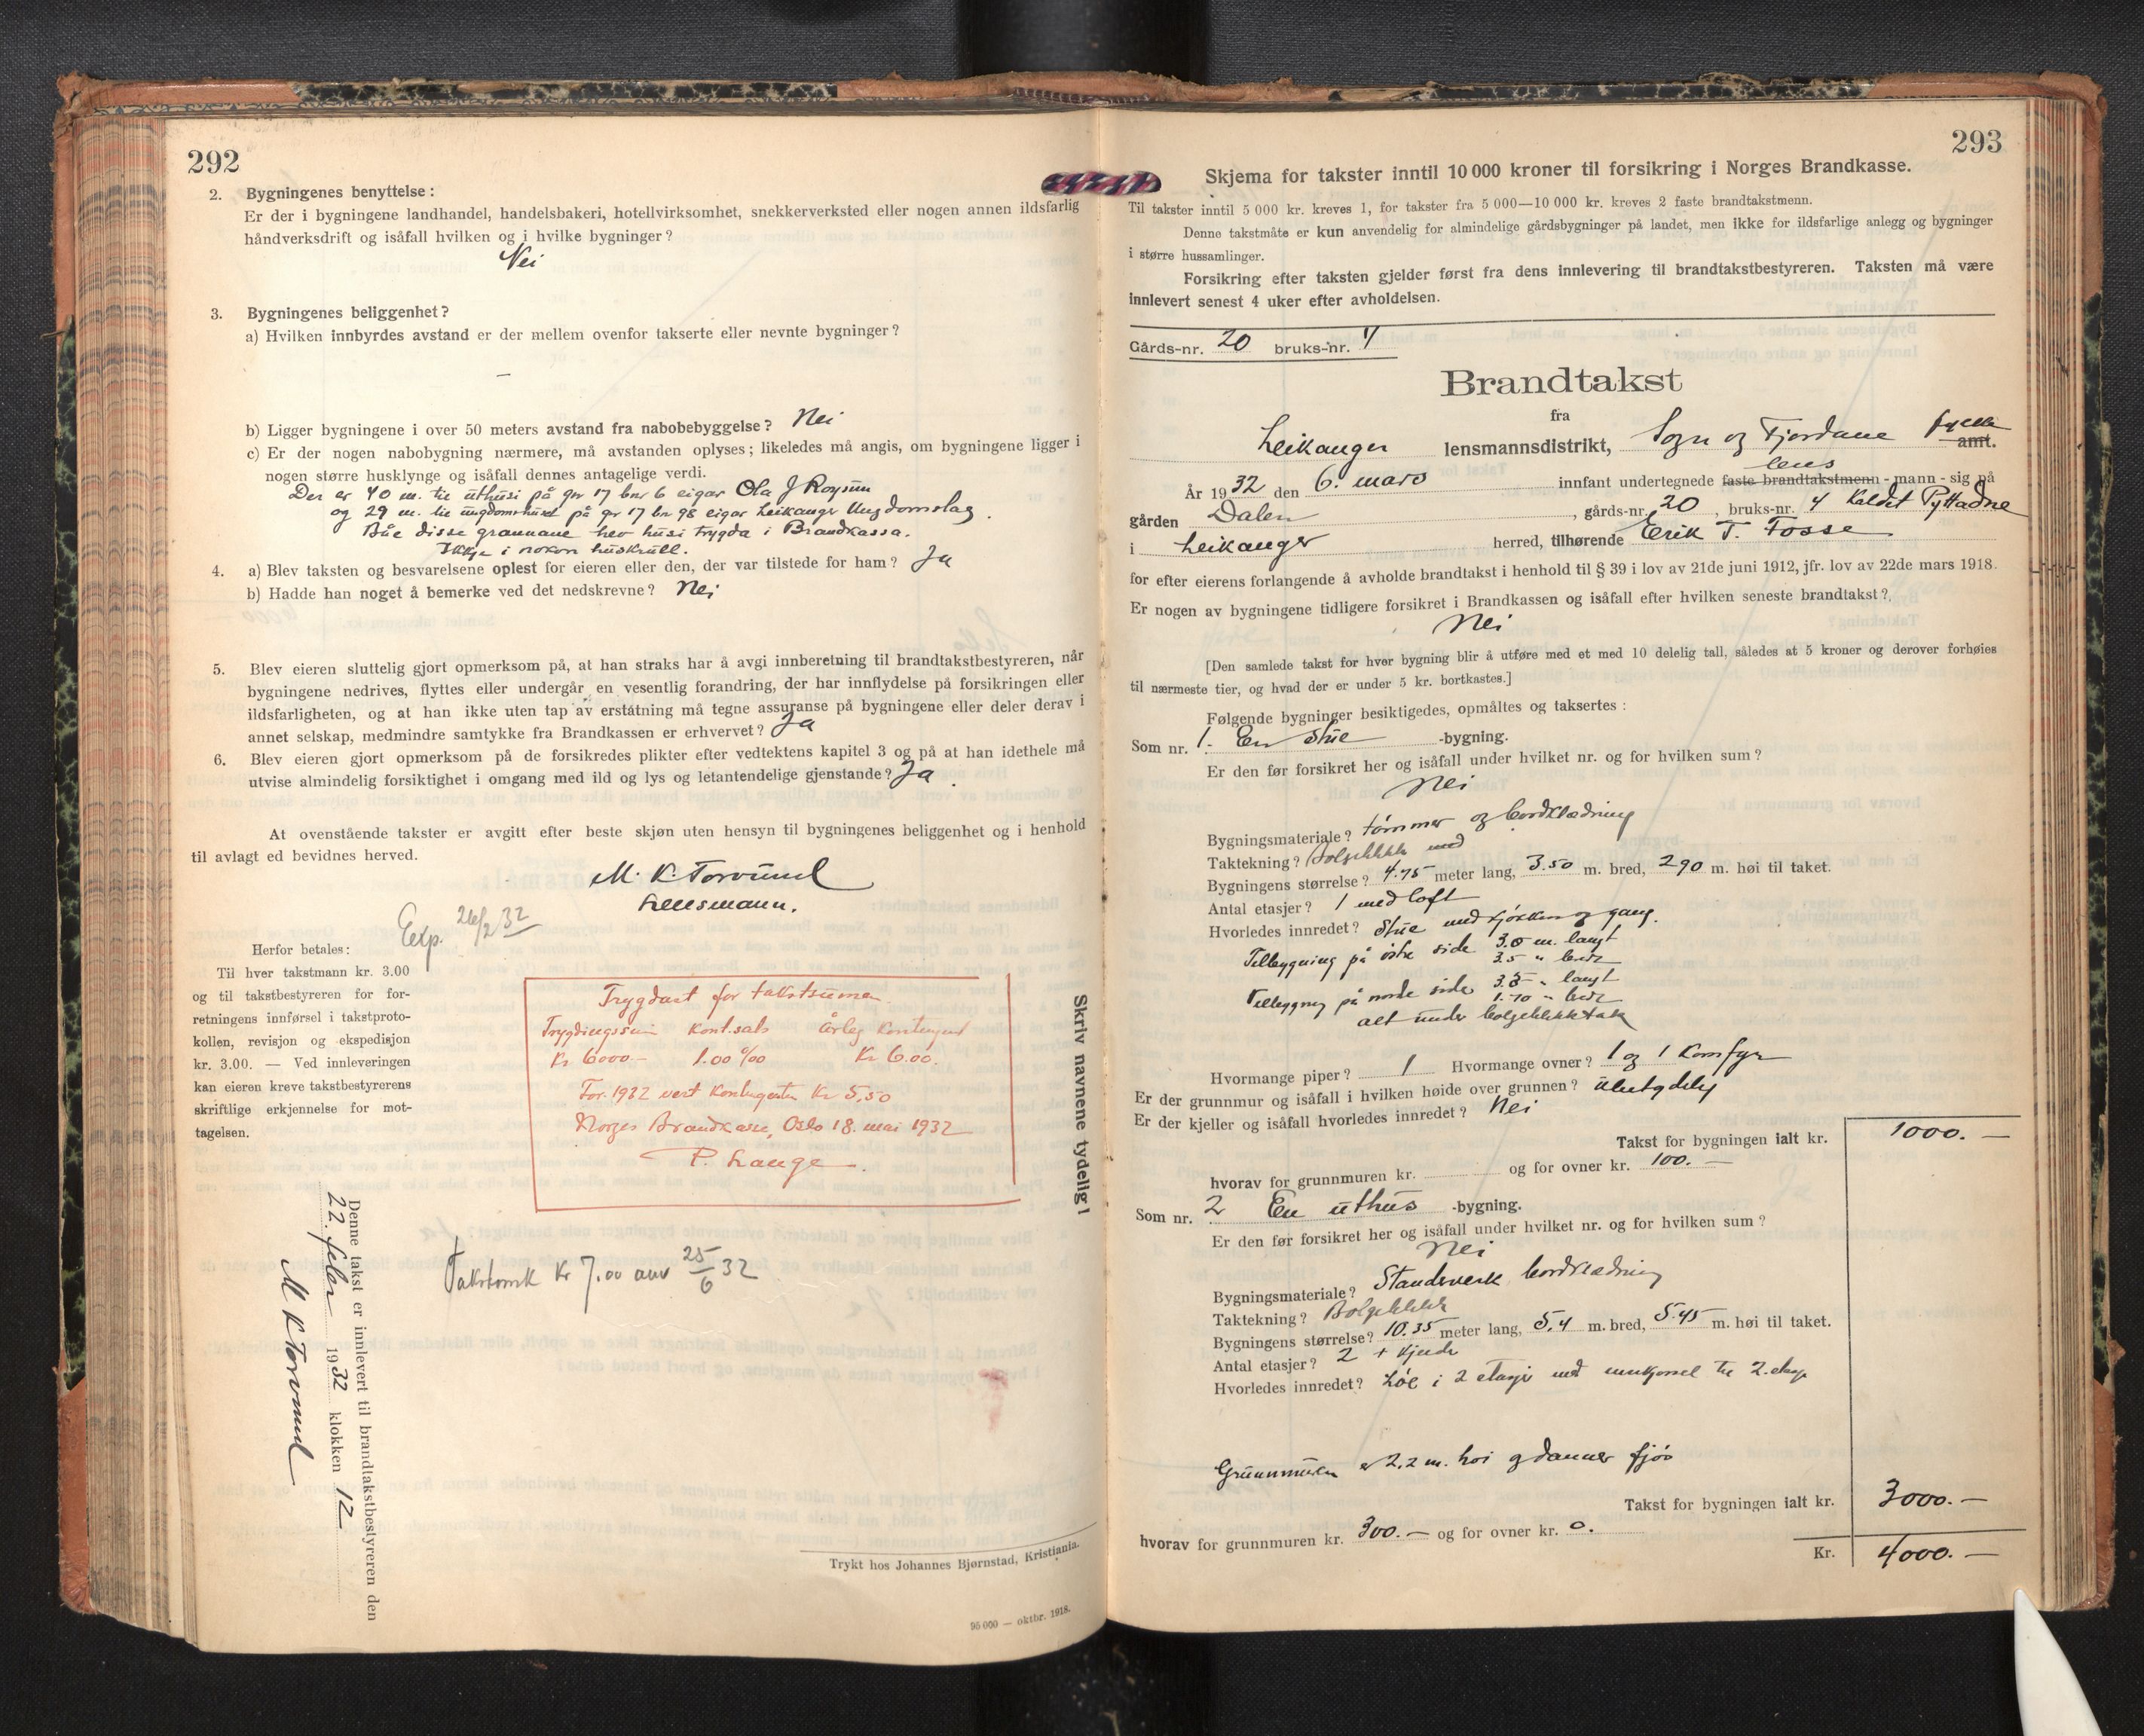 292
2. Bygningenes benyttelse:
Er der i bygningene landhandel, handelsbakeri, hotellvirksomhet, snekkerverksted eller nogen annen ildsfarlig
håndverksdrift og isåfall hvilken og i hvilke bygninger?
Nei
3. Bygningenes beliggenhet?
a) Hvilken innbyrdes avstand er der mellem ovenfor takserte eller nevnte bygninger?
—
b) Ligger bygningene i over 50 meters avstand fra nabobebyggelse? Nei
c) Er der nogen nabobygning nærmere, må avstanden oplyses; likeledes må angis, om bygningene ligger i
nogen større husklynge og isåfall dennes antagelige verdi.
Der er 40 m. til uthusi på gnr 17 bnr 6 eigar Ola J Røysum
og 29 m. til ungdomshuset på gr 17 bn 98 eigar Leikanger Ungdomslag.
Båe disse grannane hev husi trygda i Brandkassa.
Ikkje i nokon huskrull.
4. a) Blev taksten og besvarelsene oplest for eieren eller den, der var tilstede for ham? Ja
b) Hadde han noget å bemerke ved det nedskrevne? Nei
5. Blev eieren sluttelig gjort opmerksom på, at han straks har å avgi innberetning til brandtakstbestyreren, når
bygningene nedrives, flyttes eller undergår en vesentlig forandring, der har innflydelse på forsikringen eller
ildsfarligheten, og at han ikke uten tap av erstatning må tegne assuranse på bygningene eller deler derav i
annet selskap, medmindre samtykke fra Brandkassen er erhvervet? Ja
6. Blev eieren gjort opmerksom på de forsikredes plikter efter vedtektens kapitel 3 og på at han idethele må
utvise almindelig forsiktighet i omgang med ild og lys og letantendelige gjenstande? Ja.
At ovenstående takster er avgitt efter beste skjøn uten hensyn til bygningenes beliggenhet og i henhold
til avlagt ed bevidnes herved.
M. K. Torvund
Lensmann.
Exp. 26/2 32
Herfor betales:
Til hver takstmann kr. 3.00
og til takstbestyreren for for-
retningens innførsel i takstproto-
kollen, revisjon og ekspedisjon
kr. 3.00. — Ved innleveringen
kan eieren kreve takstbestyrerens
skriftlige erkjennelse for mot-
tagelsen.
Trygdast for takstsumen
Trygdingssum Kont.sats Årleg Kontingent
Kr 6000.- 1.00 ‰ Kr 6.00.
For 1932 vert kontingenten Kr 5,50
Norges Brandkasse, Oslo 18. mai 1932
P. Lange.
Skriv navnene tydelig!
Denne takst er innlevert til brandtakstbestyreren den
22. febr 1932 klokken 12
M K Torvund
Takstomk Kr 7.00 anv 25/6 32
Trykt hos Johannes Bjørnstad, Kristiania.
95 000 — oktbr. 1918.
293
Skjema for takster inntil 10 000 kroner til forsikring i Norges Brandkasse.
Til takster inntil 5 000 kr. kreves 1, for takster fra 5 000—10 000 kr. kreves 2 faste brandtakstmenn.
Denne takstmåte er kun anvendelig for almindelige gårdsbygninger på landet, men ikke for ildsfarlige anlegg og bygninger
i større hussamlinger.
Forsikring efter taksten gjelder først fra dens innlevering til brandtakstbestyreren. Taksten må være
innlevert senest 4 uker efter avholdelsen.
Gårds-nr. 20 bruks-nr. 4
Brandtakst
fra
Leikanger lensmannsdistrikt, Sogn og Fjordane fylke amt.
År 1932 den 6. mars innfant undertegnede faste brandtakstmenn lens-mann - sig på
gården Dalen, gårds-nr. 20, bruks-nr. 4 kaldet Pyttadne
i Leikanger herred, tilhørende Erik T. Fosse
for efter eierens forlangende å avholde brandtakst i henhold til § 39 i lov av 21de juni 1912, jfr. lov av 22de mars 1918.
Er nogen av bygningene tidligere forsikret i Brandkassen og isåfall efter hvilken seneste brandtakst?
Nei
[Den samlede takst for hver bygning blir å utføre med et med 10 delelig tall, således at 5 kroner og derover forhøies
til nærmeste tier, og hvad der er under 5 kr. bortkastes.]
Følgende bygninger besiktigedes, opmåltes og taksertes:
Som nr. 1. En stue -bygning.
Er den før forsikret her og isåfall under hvilket nr. og for hvilken sum?
Nei
Bygningsmateriale? tømmer og bordklædning
Taktekning? Bølgeblikk med
Bygningens størrelse? 4.75 meter lang, 3.50 m. bred, 2.90 m. høi til taket.
Antal etasjer? 1 med loft
Hvorledes innredet? Stue med kjøkken og gang.
Tilbygning på østre side 3.0 m. langt
3.5 " bredt
Tilbygning på nordre side 3.5 " langt
1.70 " bredt
alt under bølgeblikktak
Hvormange piper? 1 Hvormange ovner? 1 og 1 komfyr
Er der grunnmur og isåfall i hvilken høide over grunnen? ubetydelig
Er der kjeller og isåfall hvorledes innredet? Nei
Takst for bygningen ialt kr. 1000.—
hvorav for grunnmuren kr. og for ovner kr. 100.—
Som nr. 2 En uthus -bygning.
Er den før forsikret her og isåfall under hvilket nr. og for hvilken sum?
Nei
Bygningsmateriale? Standsverk bordklædning
Taktekning? Bølgeblikk
Bygningens størrelse? 10.35 meter lang, 5.4 m. bred, 5.45 m. høi til taket.
Antal etasjer? 2 +
Hvorledes innredet? Løe i 2 etasjer med innkjørsel til 2. etage
Grunnmuren er 2,2 m. høi og danner fjøs
Takst for bygningen ialt kr. 3000.—
hvorav for grunnmuren kr. 300.— og for ovner kr. 0.
Kr. 4000.—